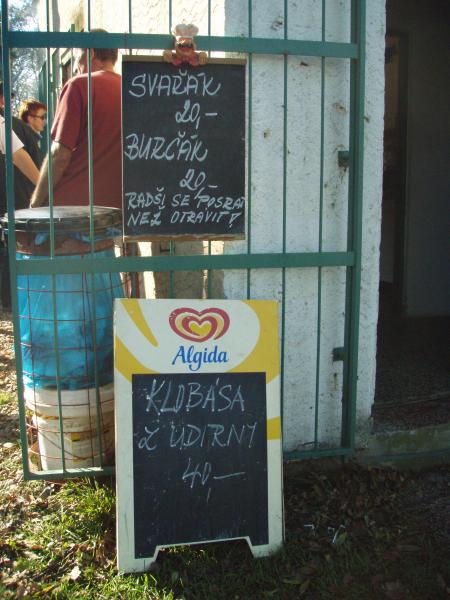 SVAŘÁK
20,-
BURČÁK
20,-
RADŠI SE POSRAT
NEŽ OTRÁVIT!
Algida
KLOBÁSA
Z UDÍRNY
40,-